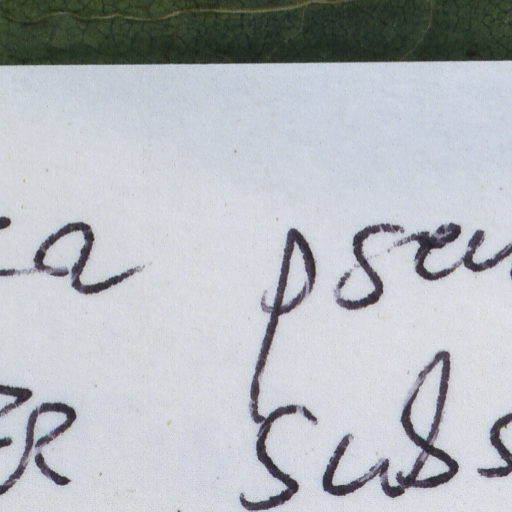 ca pseu
ER subs